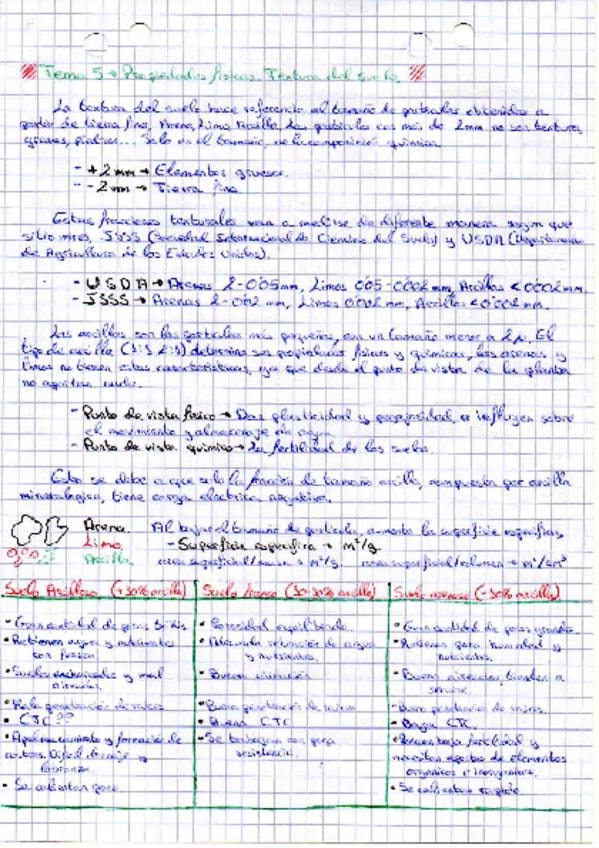 Tema 5 → Propiedades físicas. Textura del suelo.
La textura del suelo hace referencia al tamaño de partículas obtenidas a
partir de tierra fina, Arena, Limo, Arcilla. Las partículas con más de 2mm no son textura,
gravas, piedras... Solo es el tamaño, no la composición química.
- +2mm → Elementos gruesos.
- -2mm → Tierra fina
Estas fracciones texturales van a medirse de diferente manera según que
sitio mires, ISSS (Sociedad Internacional de Ciencias del Suelo) y USDA (Departamento
de Agricultura de los Estados Unidos).
- USDA → Arenas 2-0'05mm, Limos 0'05-0'002mm, Arcillas <0'002mm.
- ISSS → Arenas 2-0'02 mm, Limos 0'002 mm, Arcillas <0'002 mm.
Las arcillas son las partículas más pequeñas, con un tamaño menor a 2µ. El
tipo de arcilla (1:1, 2:1) determina sus propiedades físicas y químicas, las arenas y
limos no tienen estas características, ya que desde el punto de vista de la planta
no aportan nada.
- Punto de vista físico → Dan plasticidad y pegajosidad, e influyen sobre
el movimiento y almacenaje de agua.
- Punto de vista químico → La fertilidad de los suelos.
Esto se debe a que solo la fracción de tamaño arcilla, compuesta por arcilla
mineralógica, tiene carga eléctrica negativa.
Arena. Al bajar el tamaño de partícula, aumenta la superficie específica,
Limo. - Superficie específica → m²/g
Arcilla. area superficial/masa → m²/g. area superficial/volumen → m²/cm³
Suelo Arcilloso (+30% arcilla) Suelo franco (10-30% arcilla) Suelo arenoso (-10% arcilla)
• Gran cantidad de poros • Porosidad equilibrada • Gran cantidad de poros grandes.
• Retienen agua y nutrientes • Adecuada retención de agua • Retienen poca humedad y
con fuerza. y nutrientes. nutrientes.
• Suelos encharcados y mal • Buena aireación • Buena aireación, tienden a
aireados.
• Mala penetración de raíces • Buena penetración de raíces • Buena penetración de raíces.
• CIC?? • Buena CIC • Baja
• Apelmazamiento y formación de • Se trabajan con poca • Poca fertilidad y
costras. Difícil drenaje y resistencia. necesitan aportes de elementos
labranza. orgánicos e inorgánicos.
• Se calientan poco. • Se calientan rápido.